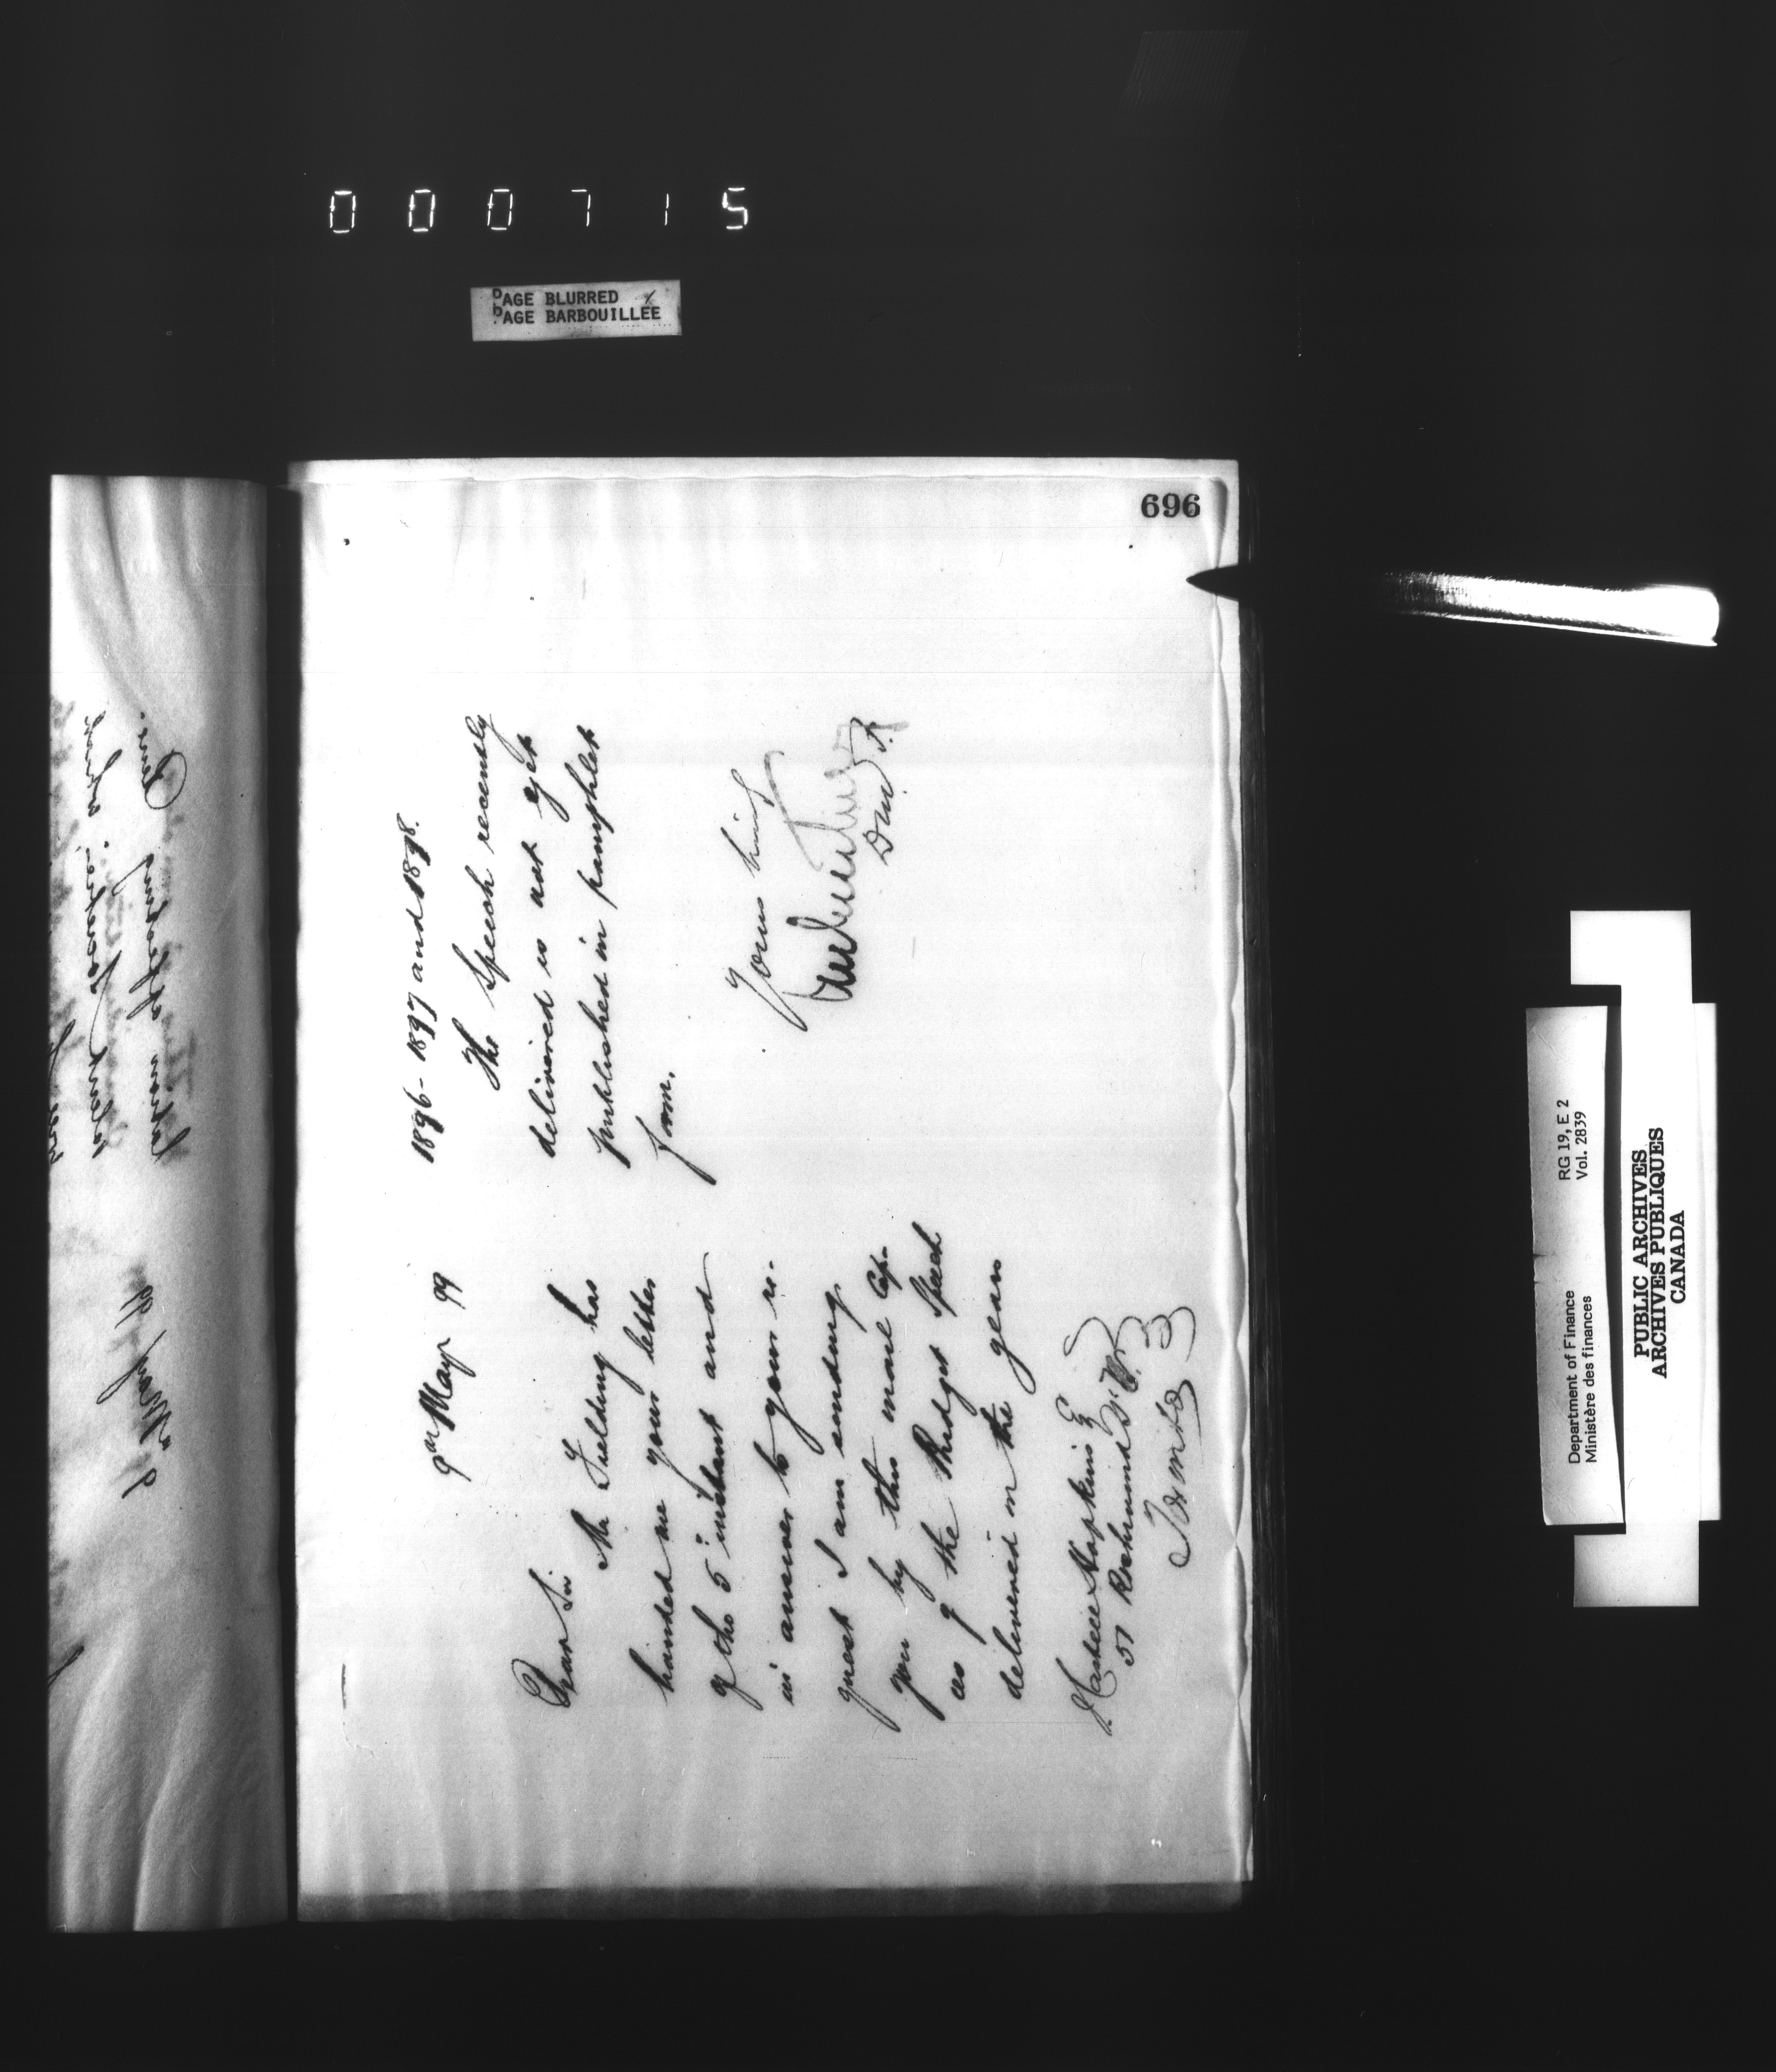 000715
PAGE BLURRED
PAGE BARBOUILLEE
696
9th May 99
Dear Sir
Mr Fielding has
handed me your letter
of the 5" instant and
in answer to your re-
quest I am sending
you by this mail cop-
ies of the Budget Speech
delivered in the years
Hopkins Esq
57 Richmond St W.
Toronto
1896-1897 and 1898.
The Speech recently
delivered is not yet
published in pamphlet
form.
Yours truly
Department of Finance
Ministère des finances
RG 19, E 2
Vol. 2839
PUBLIC ARCHIVES
ARCHIVES PUBLIQUES
CANADA